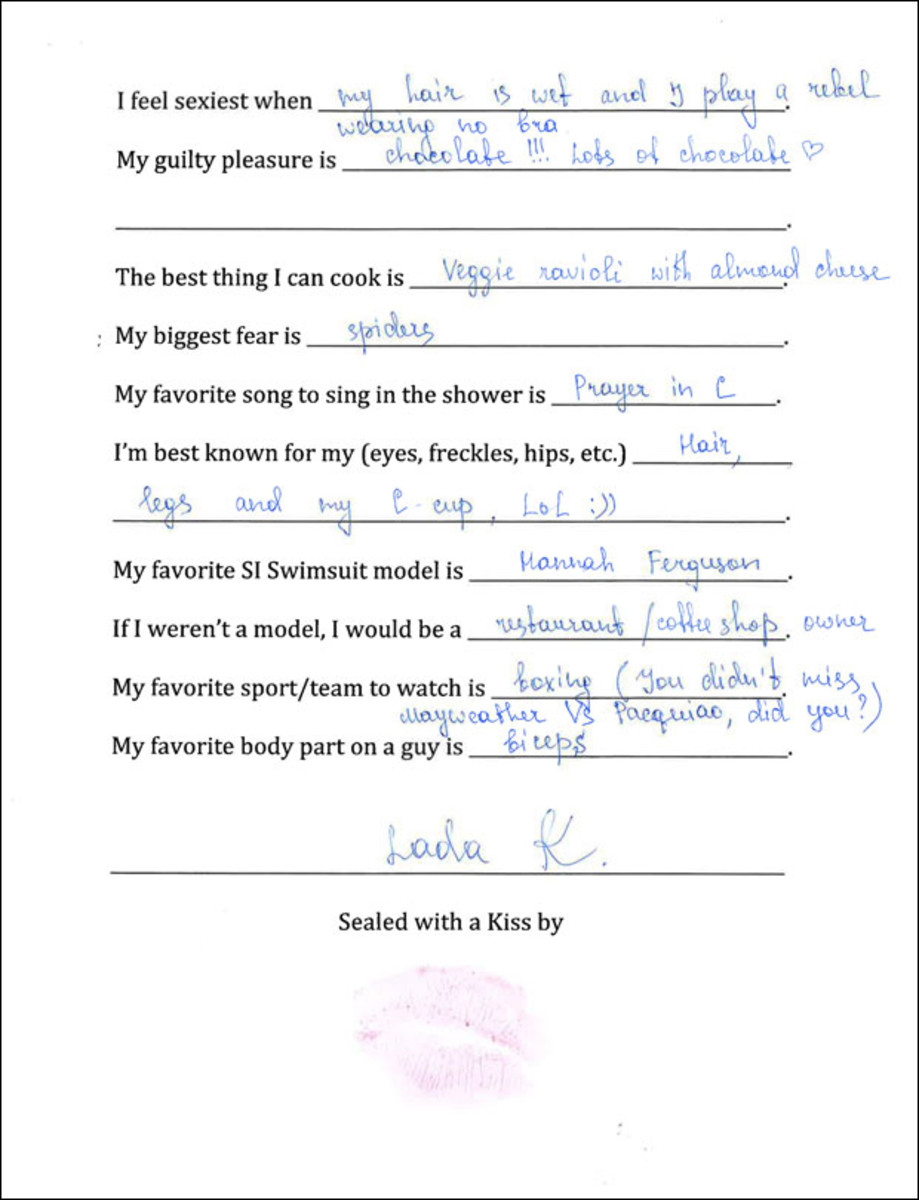 I feel sexiest when my hair is wet and I play a rebel
wearing no bra.
My guilty pleasure is chocolate !!! Lots of chocolate ♡
.
The best thing I can cook is Veggie ravioli with almond cheese.
: My biggest fear is spiders.
My favorite song to sing in the shower is Prayer in C.
I'm best known for my (eyes, freckles, hips, etc.) Hair,
legs and my C-cup, LoL :)).
My favorite SI Swimsuit model is Hannah Ferguson.
If I weren't a model, I would be a restaurant /coffee shop. owner
My favorite sport/team to watch is boxing (You didn't. miss
Mayweather VS Pacquiao, did you?)
My favorite body part on a guy is biceps.
Lada K.
Sealed with a Kiss by